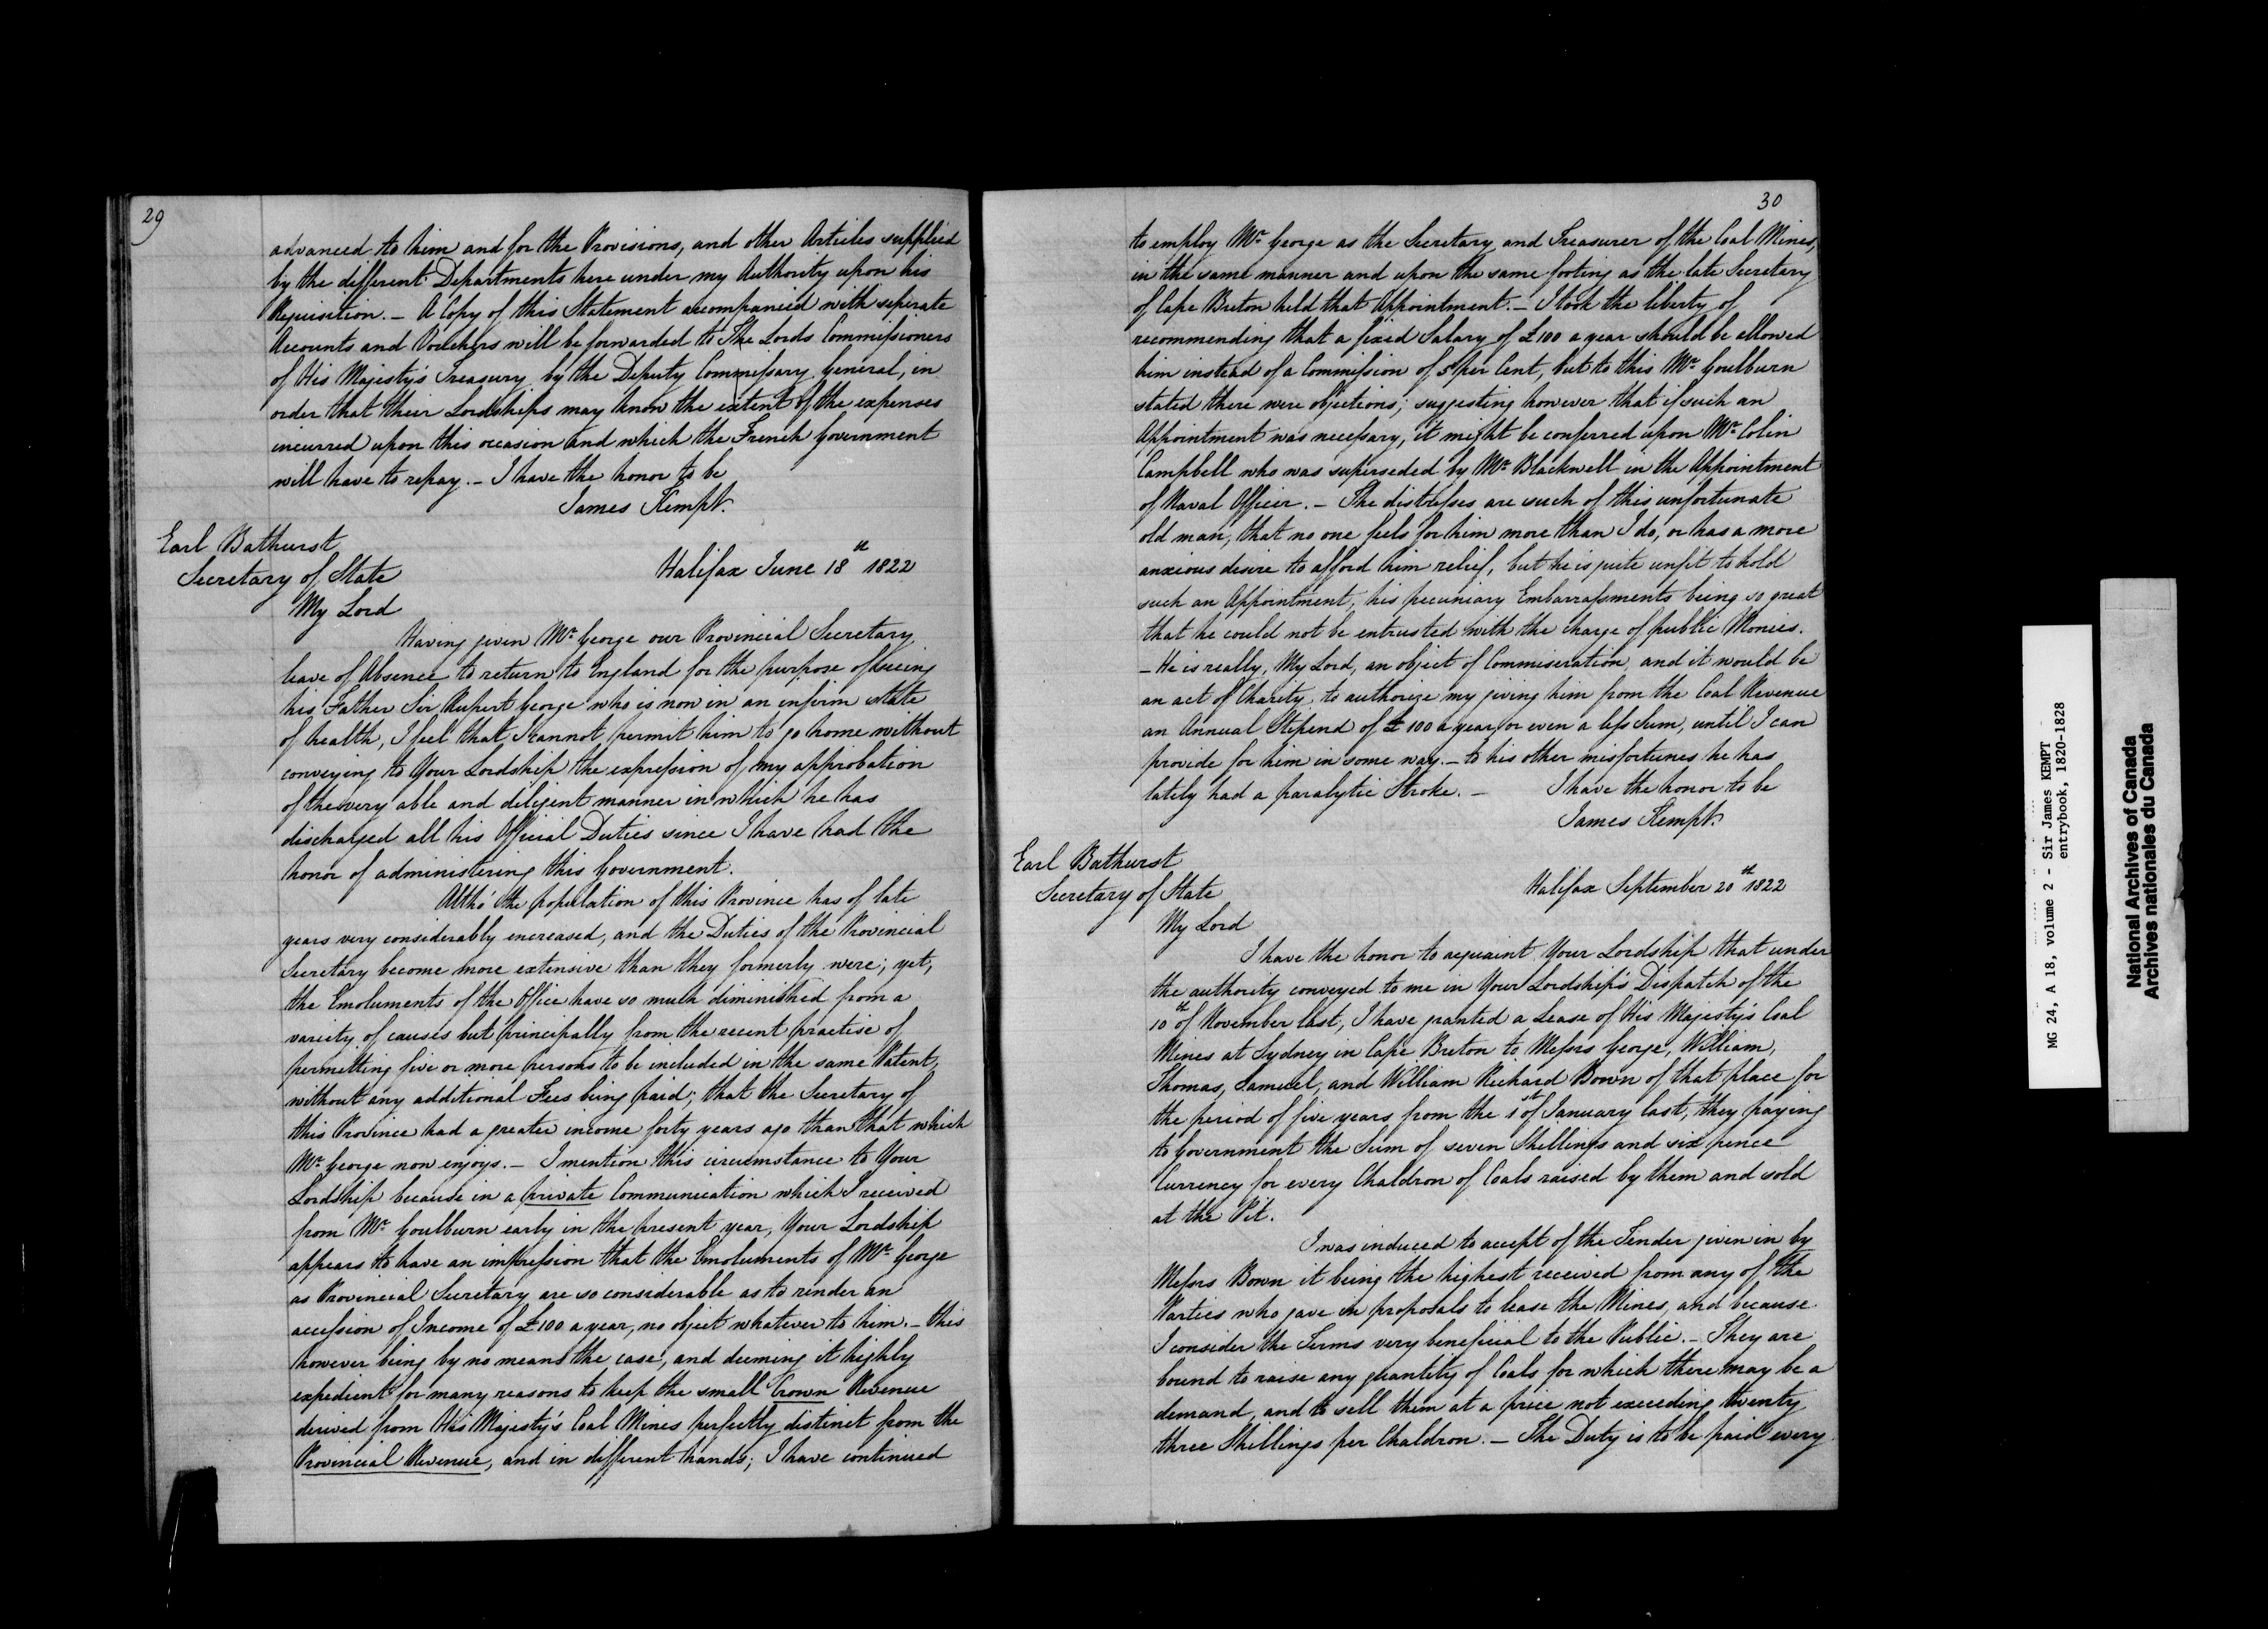 29
advanced to him and for the Provisions, and other Articles supplied
by the different Departments here under my Authority upon his
Requisition. – A Copy of this Statement accompanied with seperate
Accounts and Vouchers will be forwarded to The Lords Commissioners
of His Majesty's Treasury by the Deputy Commissary General, in
order that their Lordships may know the extent of the expenses
incurred upon this occasion and which the French Government
will have to repay. – I have the honor to be
James Kempt.
Earl Bathurst
Secretary of State
Halifax June 18th 1822
My Lord
Having given Mr George our Provincial Secretary
leave of Absence to return to England for the purpose of seeing
his Father Sir Rupert George who is now in an infirm state
of health, I feel that I cannot permit him to go home without
conveying to Your Lordship the expression of my approbation
of the very able and diligent manner in which he has
discharged all his Official Duties since I have had the
honor of administering this Government.
Altho' the population of this Province has of late
years very considerably encreased, and the Duties of the Provincial
Secretary become more extensive than they formerly were; yet,
the Emoluments of the Office have so much diminished from a
variety of causes but principally from the recent practise of
permitting five or more Persons to be included in the same Patent,
without any additional Fees being paid; that the Secretary of
this Province had a greater income forty years ago than that which
Mr George now enjoys. – I mention this circumstance to Your
Lordship because in a private Communication which I received
from Mr Goulburn early in the present year, Your Lordship
appears to have an impression that the Emoluments of Mr George
as Provincial Secretary are so considerable as to render an
accession of Income of £100 a year, no object whatever to him. – this
however being by no means the case, and deeming it highly
expedient for many reasons to keep the small Crown Revenue
derived from His Majesty's Coal Mines perfectly distinct from the
Provincial Revenue, and in different hands; I have continued
30
to employ Mr George as the Secretary and Treasurer of the Coal Mines,
in the same manner and upon the same footing as the late Secretary
of Cape Breton held that Appointment. – I took the liberty of
recommending that a fixed Salary of £100 a year should be allowed
him instead of a Commission of 5 per Cent, but to this Mr Goulburn
stated there were objections; suggesting however that if such an
Appointment was necessary, it might be conferred upon Mr Colin
Campbell who was superseded by Mr Blackwell in the Appointment
of Naval Officer. – The distresses are such of this unfortunate
old man, that no one feels for him more than I do, or has a more
anxious desire to afford him relief, but he is quite unfit to hold
such an Appointment, his pecuniary Embarrassments being so great
that he could not be entrusted with the charge of public Monies.
– He is really, My Lord, an object of Commiseration, and it would be
an act of Charity, to authorize my giving him from the Coal Revenue
an Annual Stipend of £100 a year, or even a less Sum, until I can
provide for him in some way. – to his other misfortunes he has
lately had a paralytic Stroke. – I have the honor to be
James Kempt.
Earl Bathurst
Secretary of State
Halifax September 20th 1822
My Lord
I have the honor to acquaint Your Lordship that under
the authority conveyed to me in Your Lordship's Dispatch of the
10th of November last, I have granted a Lease of His Majesty's Coal
Mines at Sydney in Cape Breton to Messrs George, William,
Thomas, Samuel, and William Richard Bown of that place for
the period of five years from the 1st of January last, they paying
to Government the Sum of seven Shillings and six pence
Currency for every Chaldron of Coals raised by them and sold
at the Pit.
I was induced to accept of the Tender given in by
Messrs Bown it being the highest received from any of the
Parties who gave in proposals to lease the Mines, and because
I consider the Terms very beneficial to the Public. – They are
bound to raise any quantity of Coals for which there may be a
demand, and to sell them at a price not exceeding twenty
three Shillings per Chaldron. – The Duty is to be paid every
MG 24, A 18, volume 2 - Sir James KEMPT
entrybook, 1820-1828
National Archives of Canada
Archives nationales du Canada